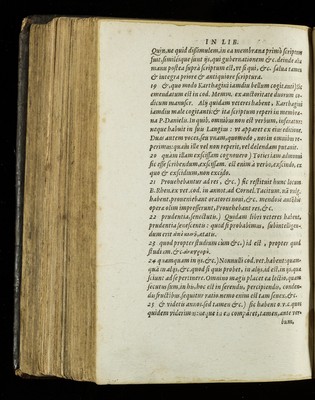 IN LIB.
Quin, ne quid dissimulem, in ea membrana primò scriptum
fuit, similesque sunt ijs, qui gubernationem &c. deinde alia
manu postea suprà scriptum est, vt si qui, &c. salua tamen
& integra priore & antiquiore scriptura.
19 &, quo modo Karthagini iamdiu bellum cogitanti) sic
emendatum est in cod. Memm. ex auctoritate duorum co-
dicum manuscr. Alij quidam veteres habent, Karthagini
iamdiu malè cogitanti: & ita scriptum reperi in membra-
na P. Danielis. In quib. omnibus
neque habuit in suo Langius: vt apparet ex eius editione.
Duas autem voces, seu vnam, quomodo, nec in omnibus re-
perimus: quam ille vel non repererit, vel delendam putauit.
20 quàm illam excisam cognouero) Toties iam admonui
sic esse scribendum, excisam. est enim à verbo, excindo, ex
quo & excidium, non excido.
21 Prouehebantur ad res, &c.) sic restituit hunc locum
B. Rhen. ex vet. cod. in annot. ad Cornel. Tacitum. nã vulg.
habent, proueniebant oratores noui, &c. mendosè antiquâ
opera olim impresserunt, Prouehant res, &c.
22 prudentia, senectutis.) Quidam libri veteres habent,
prudentia senescentis: quod si probabimus, subintellegen-
dum erit
23 quod propter studium cùm &c.) id est, propter quod
studium, &c.
24 quamquam in ijs, &c.) Nonnulli cod. vet. habent: quam-
quã in alijs, &c. quod si quis probet, in alijs, id est, in ijs, quæ
sensus ad se pertinere. Omnino magis placet ea lectio, quam
secutus sum, in his, hoc est in serendis, percipiendis, conden-
dis fructibus, sequitur ratio. nemo enim est tam senex, &c.
25 & videtis annos, sed tamen &c.) sic habent o.v.c. quos
quidem viderim
bum,